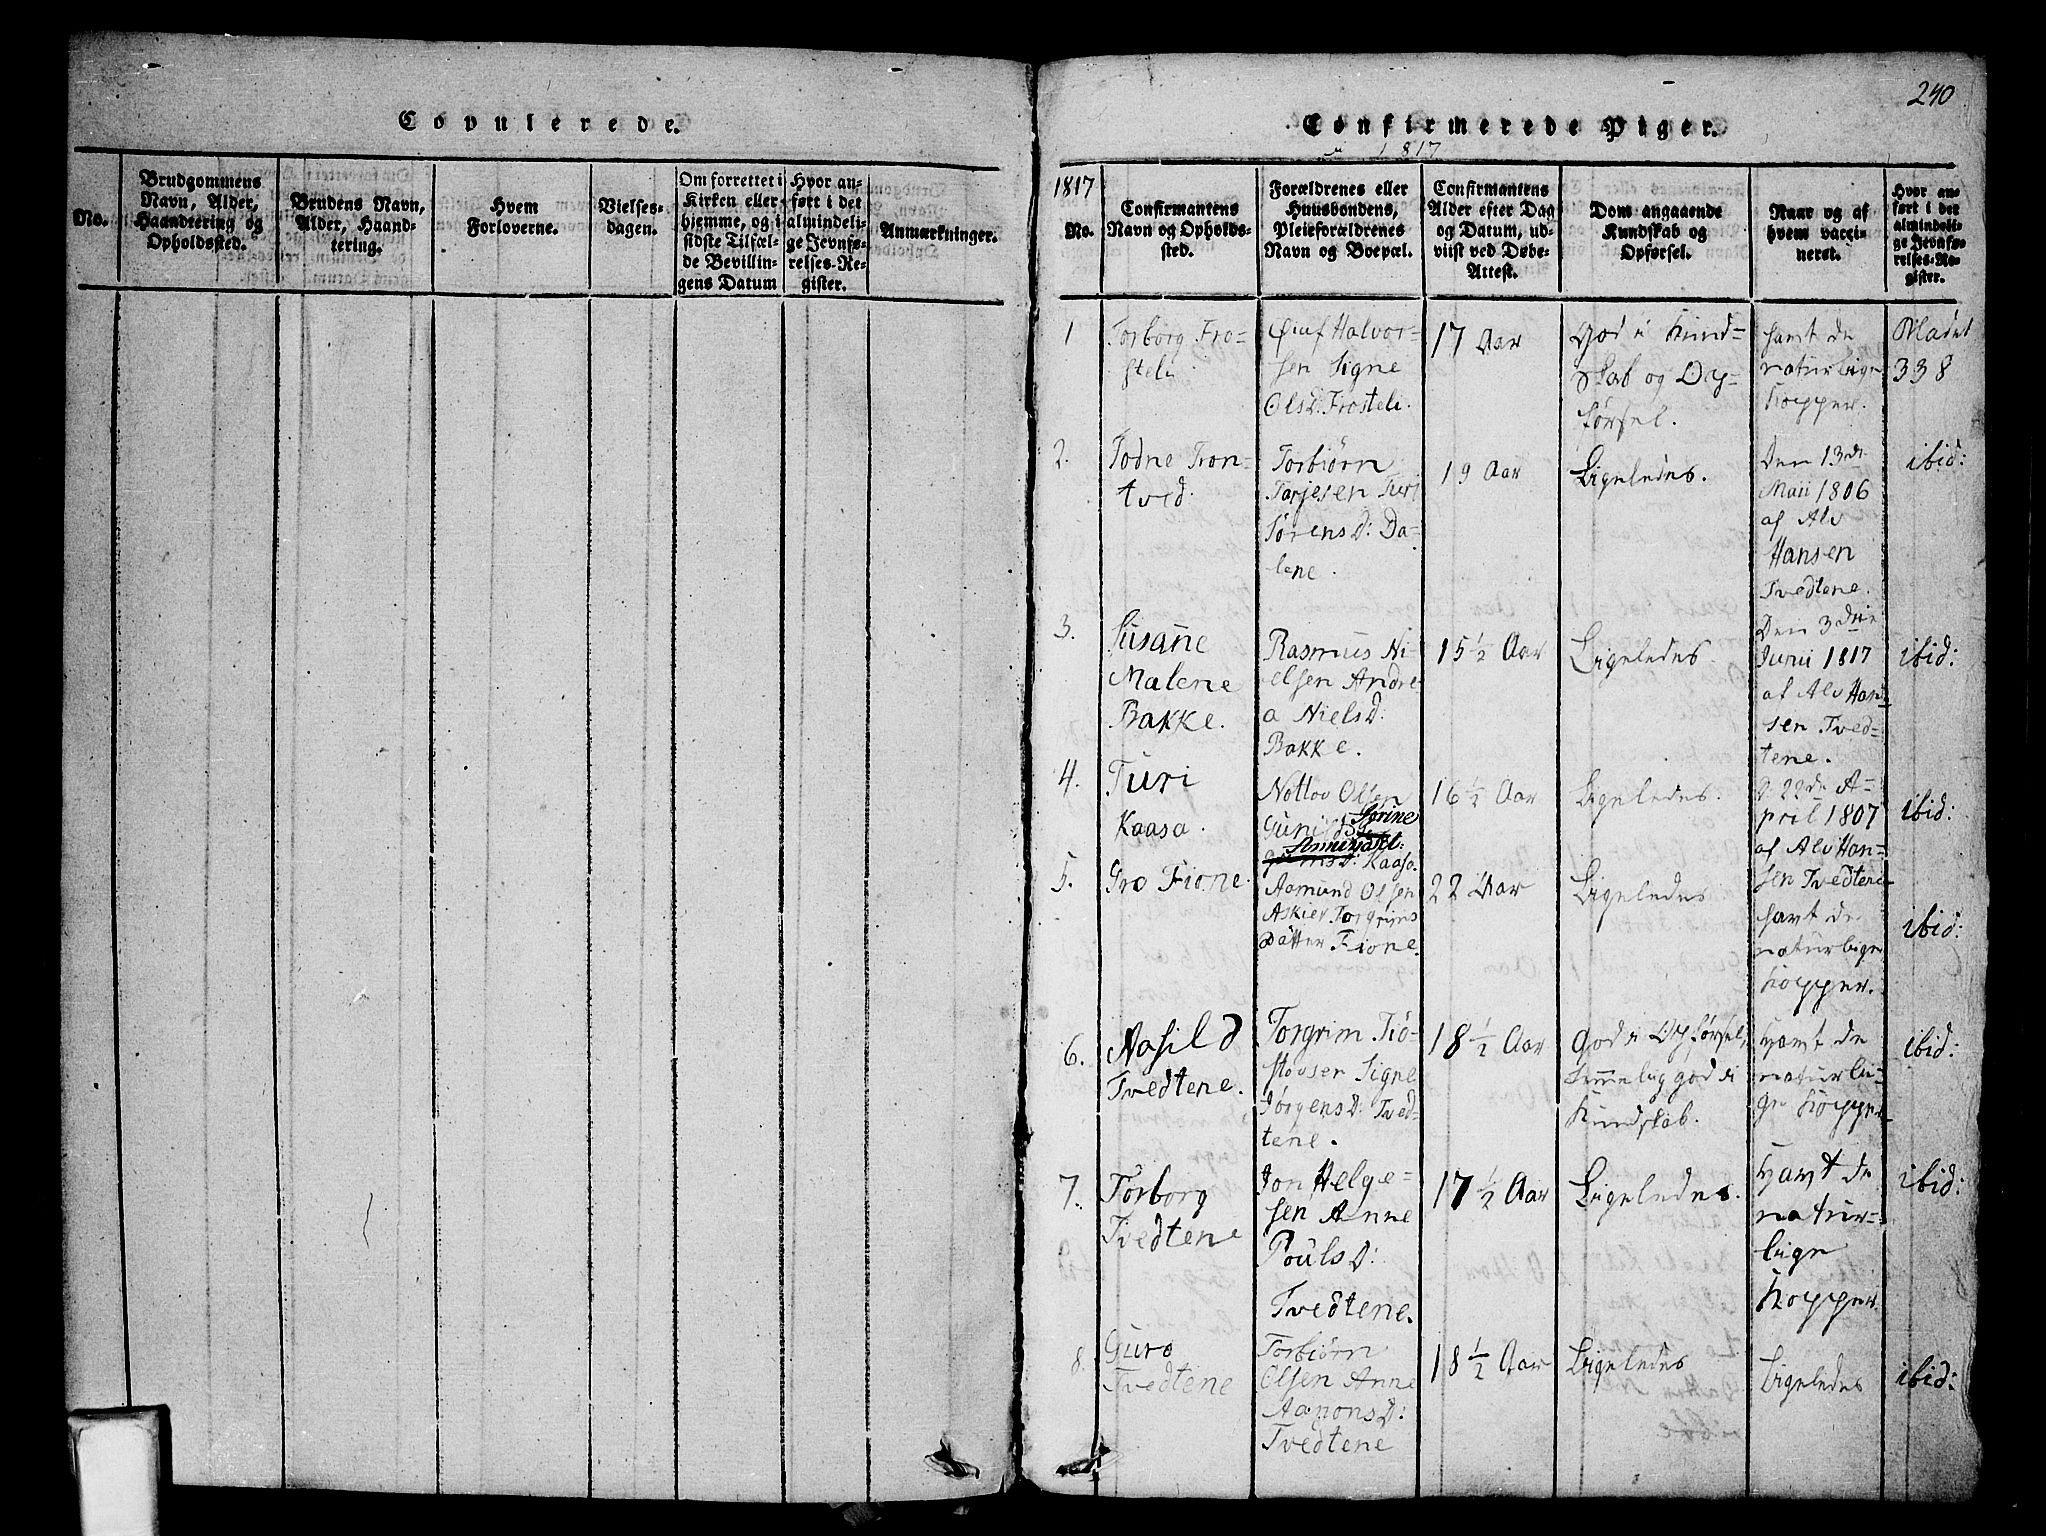 Copulerede.
No.
Brudgommens
Navn, Alder,
Haandtering og
Opholdssted.
Brudens Navn,
Alder, Haand-
tering.
Hvem
Forloverne.
Vielses-
dagen.
Om forrettet i
Kirken eller
hjemme, og i
sidste Tilfæl-
de Bevillin-
gens Datum
Hvor an-
ført i det
almindeli-
ge Jevnfø-
relses-Re-
gister.
Anmærkninger.
240
Confirmerede Piger.
i 1817
1817
No.
Confirmantens
Navn og Opholds-
sted.
Forældrenes eller
Huusbondens,
Pleieforældrenes
Navn og Boepæl.
Confirmantens
Alder efter Dag
og Datum, ud-
viist ved Døbe-
Attest.
Dom angaaende
Kundskab og
Opførsel.
Naar og af
hvem vacci-
neret.
Hvor an-
ført i det
almindeli-
ge Jevnfø-
relses-Re-
gister.
1
Torborg Fro-
steli
Oluf Halvor-
sen Signe
OlsD. Frosteli.
17 Aar
God i Kund-
skab og Op-
førsel.
havt de
naturlige
Kopper.
Bladet
338
2.
Todne Tron-
tved.
Torbiørn
Tarjesen Turi
TørensD: Da-
lene.
19 Aar
Ligeledes.
Den 13de
Maii 1806
af Alv
Hansen
Tvedtene.
ibid:
3.
Susane
Malene
Bakke.
Rasmus Ni-
elsen Andre-
a NielsD.
Bakke.
15 1/2 Aar
Ligeledes.
Den 3die
Junii 1817
af Alv Han-
sen Tved-
tene.
ibid:
4.
Turi
Kaasa.
Nottov Olsen
Kaasa.
16 1/2 Aar
Ligeledes.
D. 22de A-
pril 1807
af Alv Han-
sen Tvedtene
ibid:
5.
Gro Fione.
Aamund Olsen
Askier Torgrims
Datter Fione.
22 Aar
Ligeledes
havt de
naturlige
Kopper.
ibid:
6.
Aasild
Tvedtene.
Torgrim Tiø-
stovsen Signe
JørgensD: Tved-
tene.
18 1/2 Aar
God i Opførsel,
temmelig god i
Kundskab.
Havt de
naturli-
ge Kopper
ibid:
7.
Torborg
Tvedtene
Jon Helge-
sen Anne
PoulsD:
Tvedtene.
17 1/2 Aar
Ligeledes.
Havt de
natur-
lige
Kopper
ibid:
8.
Guro
Tvedtene
Torbiørn
Olsen Anne
AanonsD:
Tvedtene
18 1/2 Aar
Ligeledes
Ligeledes
ibid: